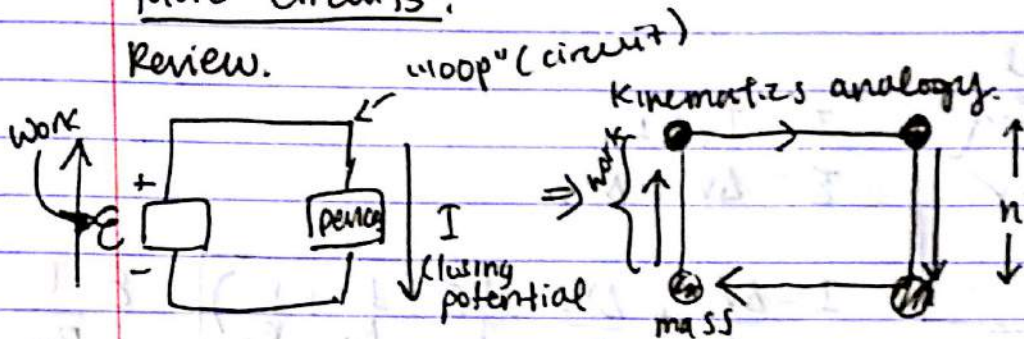 More Circuits.
Review.
"loop" (circuit)
Kinematics analogy.
Work
+
ε
-
I
losing
potential
⇒
work
h
mass